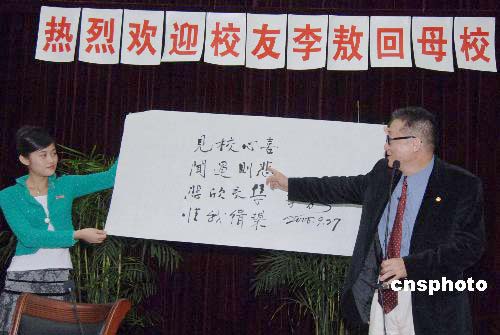 热烈欢迎校友李敖回母校
見校心喜
聞運則悲
悲欣交集
惟我緝
2005.9.27
cnsphoto